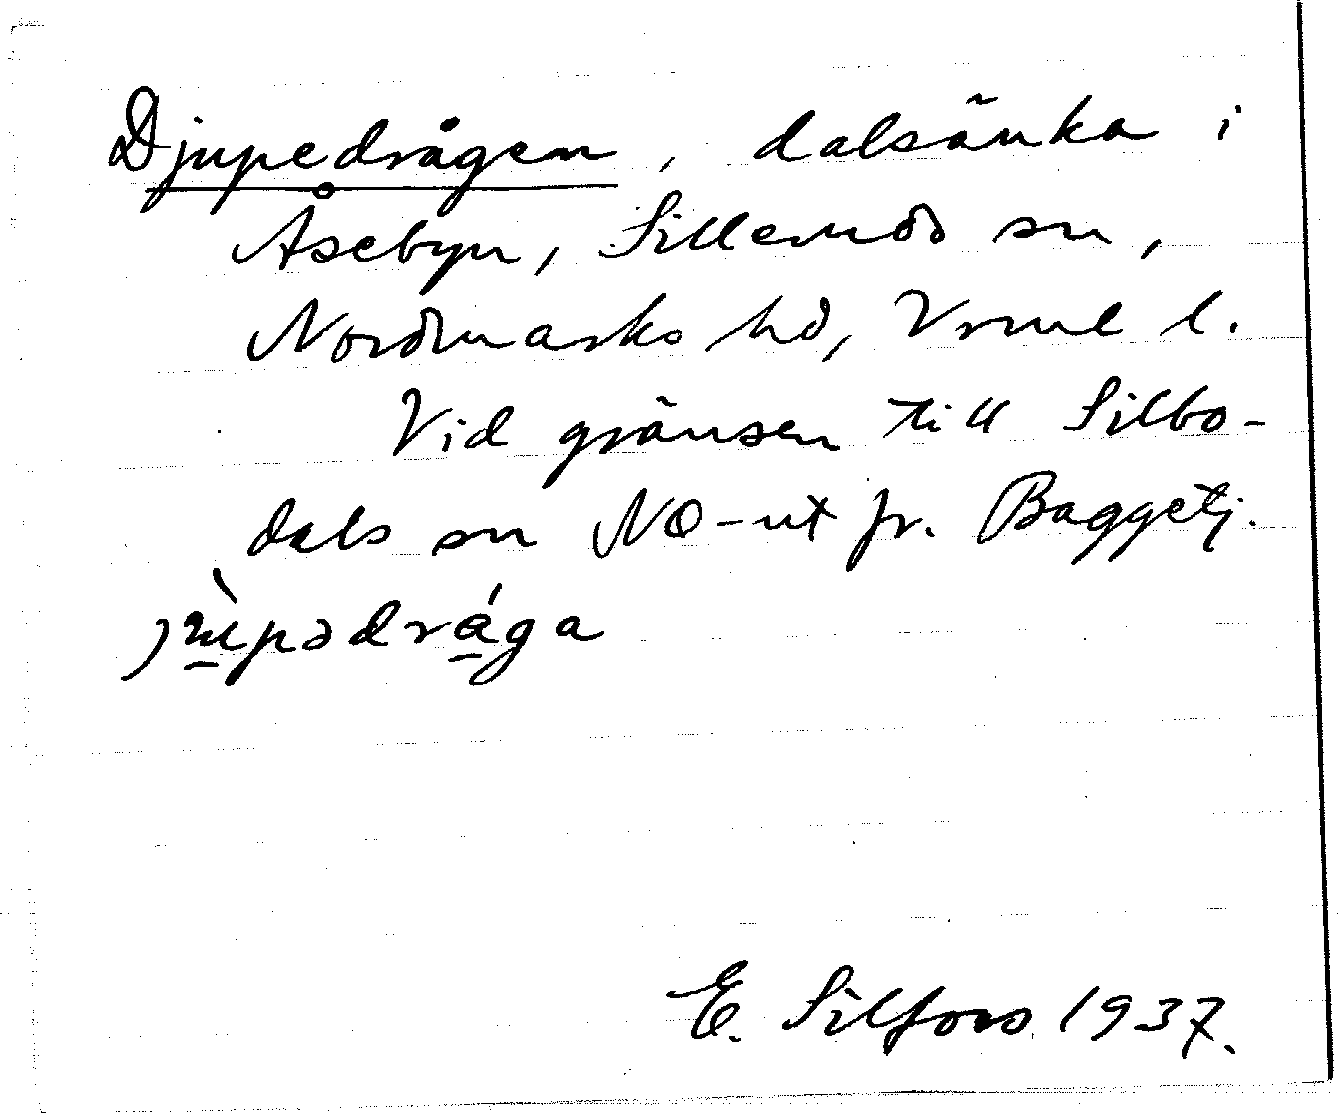 Djupedrågen, dalsänka i
Åsebyn, Sillemöd sn,
Nordmarks hd, Vrml l.
Vid gränsen till Silbo-
dals sn NO-ut fr. Baggetj.
E. Silfors 1937.